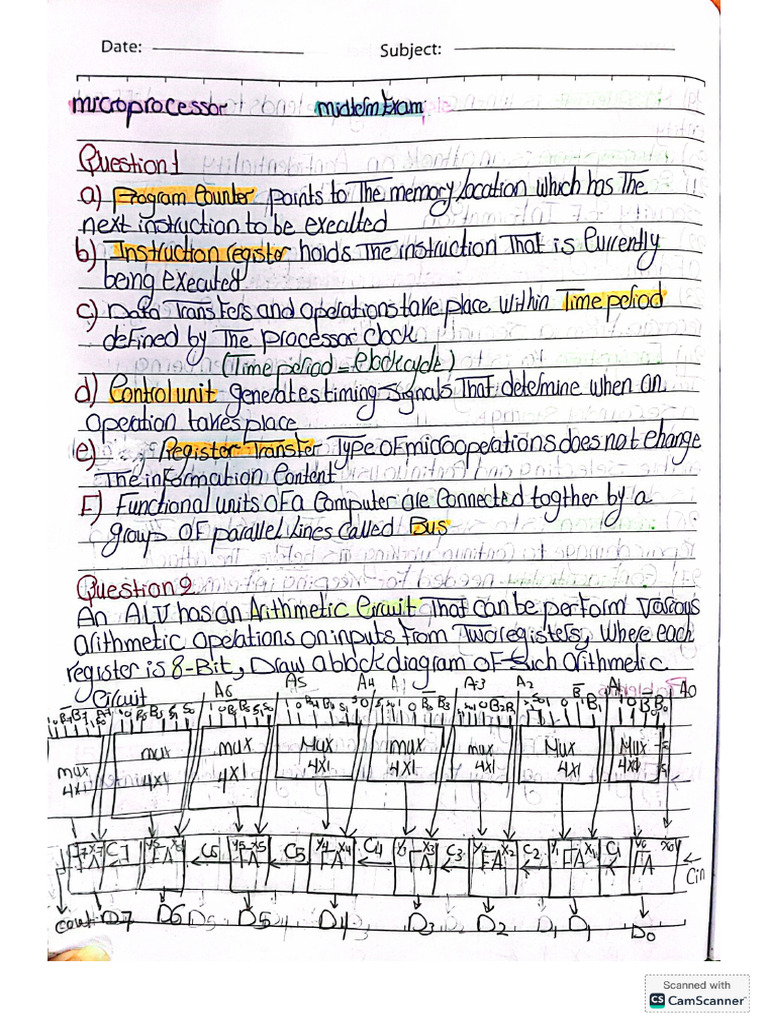 Date: Subject:
microprocessor midterm Exam
Question 1
a) Program Counter points to The memory location which has The
next instruction to be execulted
b) Instruction register holds The instruction That is Currently
being executed
c) Data Transfers and operations take place within Time period
defined by The processor clock
(Time period = Clock cycle)
d) Control unit generates timing signals That determine when an
operation takes place
e) Register Transfer Type of microoperations does not change
The information Content
F) Functional units of a Computer are Connected togther by a
groups of parallel lines called Bus
Question 2
An ALU has an Arithmetic Circuit That can be perform Various
arithmetic operations on inputs from Two registers, where each
register is 8-Bit, Draw a block diagram of such arithmetic
Circuit A6 A5 A4 A3 A2 A1 A0
mux mux mux Mux mux mux Mux Mux
4X1 4X1 4X1 4X1 4X1 4X1 4X1 4X1
Y7 X7 C7 Y5 X5 C5 Y4 X4 C4 Y3 X3 C3 Y2 X2 C2 Y1 X1 C1 Y0 X0
FA FA FA FA FA FA FA FA
Cin
Cout D7 D6 D5 D4 D3 D2 D1 D0
Scanned with
CS CamScanner